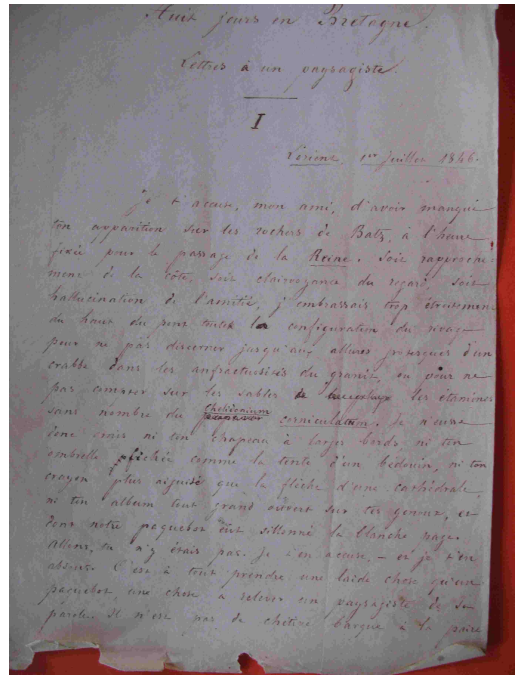 Huit jours en Bretagne.
Lettres à un paysagiste.
I
1er Juillet 1846.
Je t'accuse, mon ami, d'avoir manqué
ton apparition sur les rochers de Batz, à l'heure
fixée pour le passage de la Reine. Soit rapproche-
ment de la côte, soit clairvoyance du regard, soit
hallucination de l'amitié, j'embrassais trop étroitement
du haut du pont toute la configuration du rivage
pour ne pas discerner jusqu'aux allures grotesques d'un
crabbe dans les anfractuosités du granit, ou pour ne
pas compter sur les sables les étamines
sans nombre du corniculatum. Je n'eusse
donc omis ni ton chapeau à larges bords, ni ton
ombrelle fichée comme la tente d'un bédouin, ni ton
crayon plus aiguisé que la flèche d'une cathédrale,
ni ton album tout grand ouvert sur tes genoux, et
dont notre paquebot eût sillonné la blanche page.
Allons, tu n'y étais pas. Je t'en accuse, – et je t'en
absous. C'est à tout prendre une laide chose qu'un
paquebot, une chose à relever un paysagiste de sa
parole. Il n'est pas de chétive barque à la